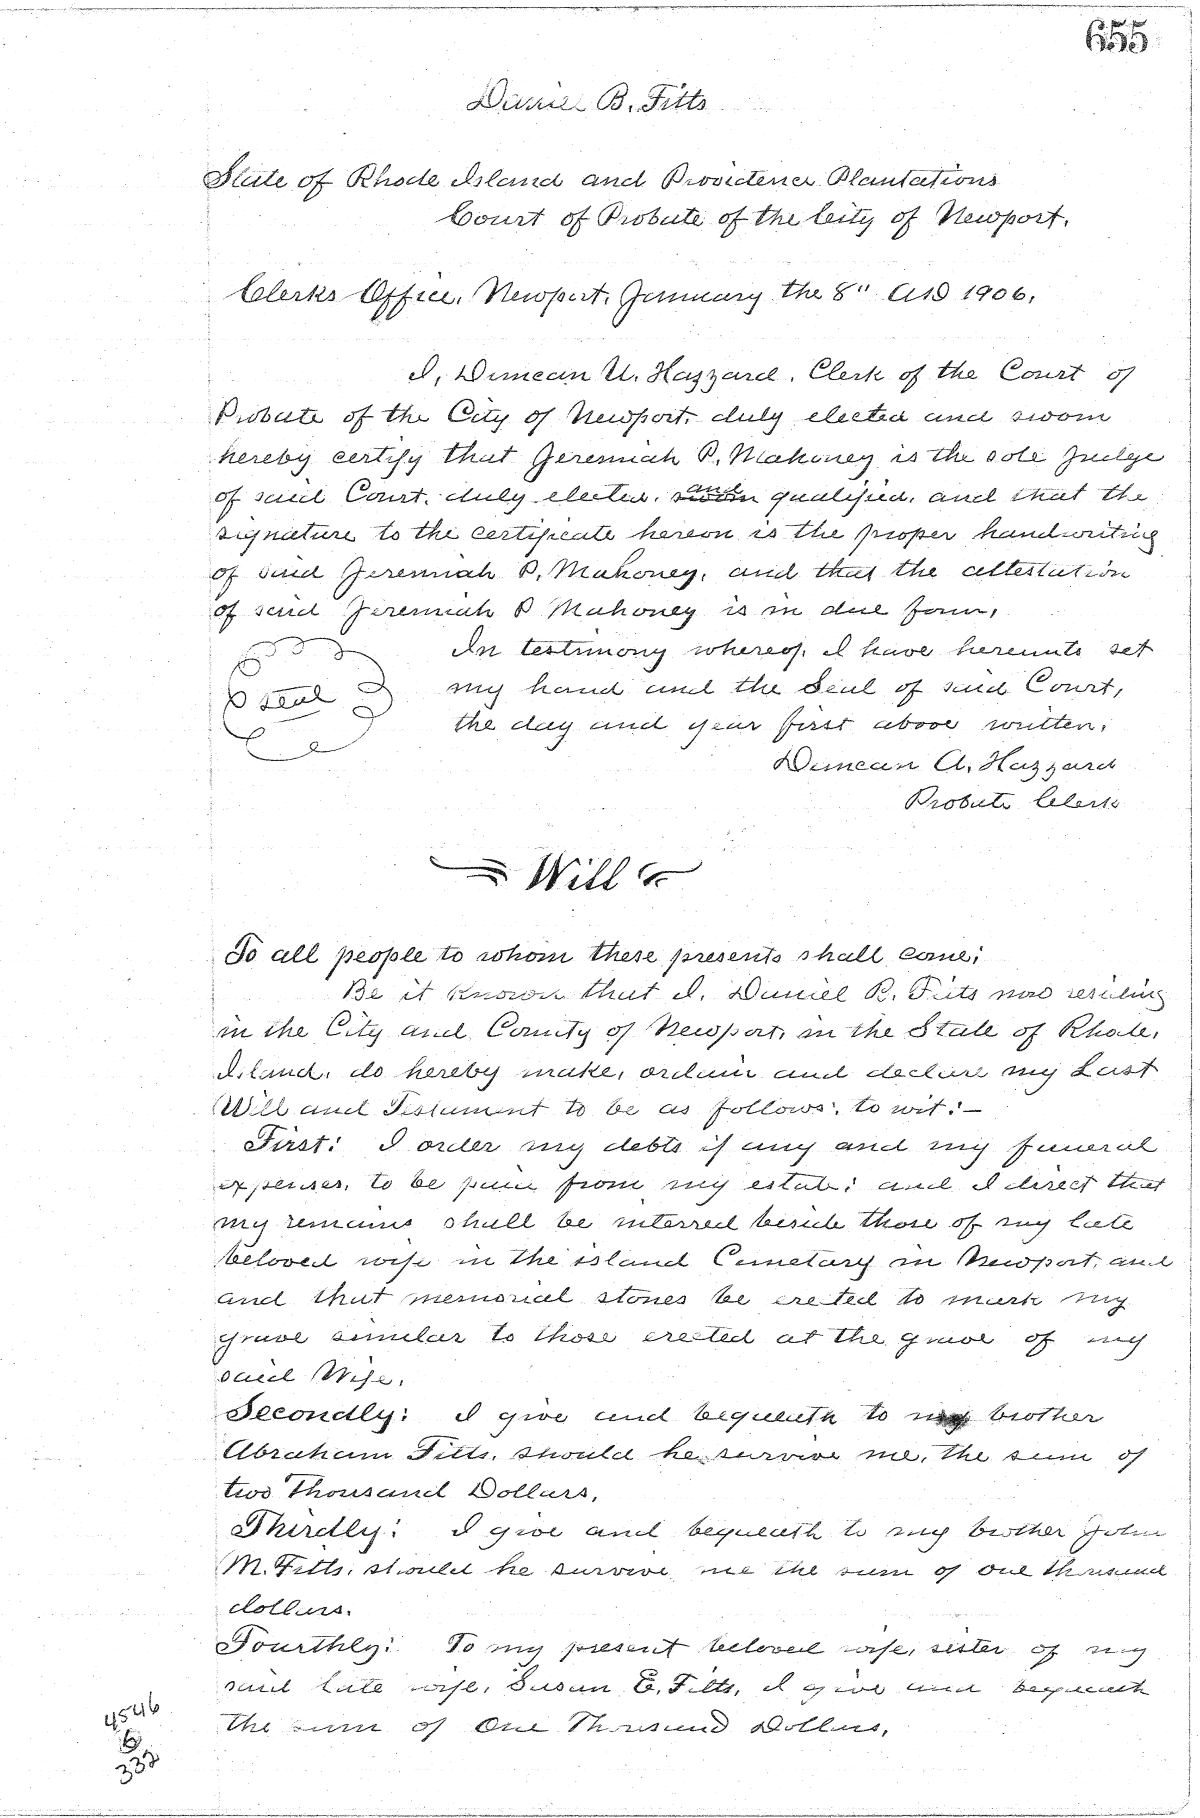 655
Daniel B. Fitts
State of Rhode Island and Providence Plantations
Court of Probate of the City of Newport.
Clerks Office, Newport, January the 8" AD 1906.
I, Duncan A. Hazzard, Clerk of the Court of
Probate of the City of Newport, duly elected and sworn
hereby certify that Jeremiah P. Mahoney is the sole Judge
of said Court, duly elected, and qualified, and that the
signature to the certificate hereon is the proper handwriting
of said Jeremiah P. Mahoney, and that the attestation
of said Jeremiah P Mahoney is in due form.
In testimony whereof, I have hereunto set
my hand and the Seal of said Court,
the day and year first above written.
seal
Duncan A. Hazzard
Probate Clerk
Will
To all people to whom these presents shall come;
Be it known that I, Daniel B. Fitts now residing
in the City and County of Newport, in the State of Rhode,
Island, do hereby make, ordain and declare my Last
Will and Testament to be as follows, to wit:-
First: I order my debts if any and my funeral
expenses, to be paid from my estate; and I direct that
my remains shall be interred beside those of my late
beloved wife in the island Cemetary in Newport, and
and that memorial stones be erected to mark my
grave similar to those erected at the grave of my
said Wife.
Secondly: I give and bequeath to my brother
Abraham Fitts, should he survive me, the sum of
two Thousand Dollars.
Thirdly: I give and bequeath to my brother John
M. Fitts, should he survive me the sum of one thousand
dollars.
Fourthly: To my present beloved wife, sister of my
said late wife, Susan E. Fitts, I give and bequeath
the sum of One Thousand Dollars.
4546
6
332